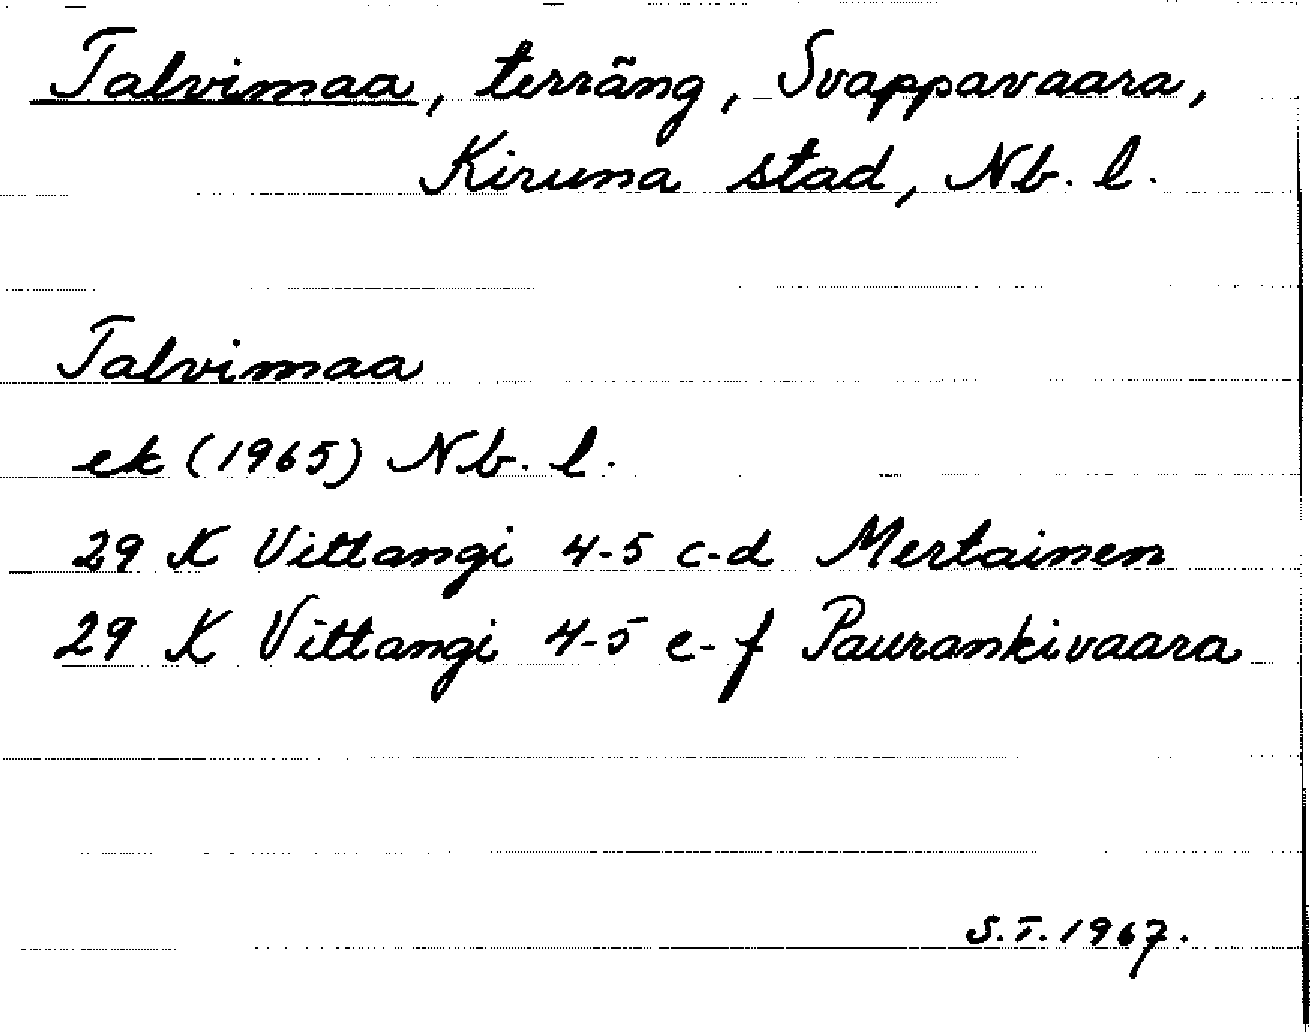 Talvimaa, terräng, Svappavaara,
Kiruna stad, Nb. l.
Talvimaa
ek (1965) Nb. l.
29 K Vittangi 4-5 c-d Mertainen
29 K Vittangi 4-5 e-f Paurankivaara
S.T. 1967.